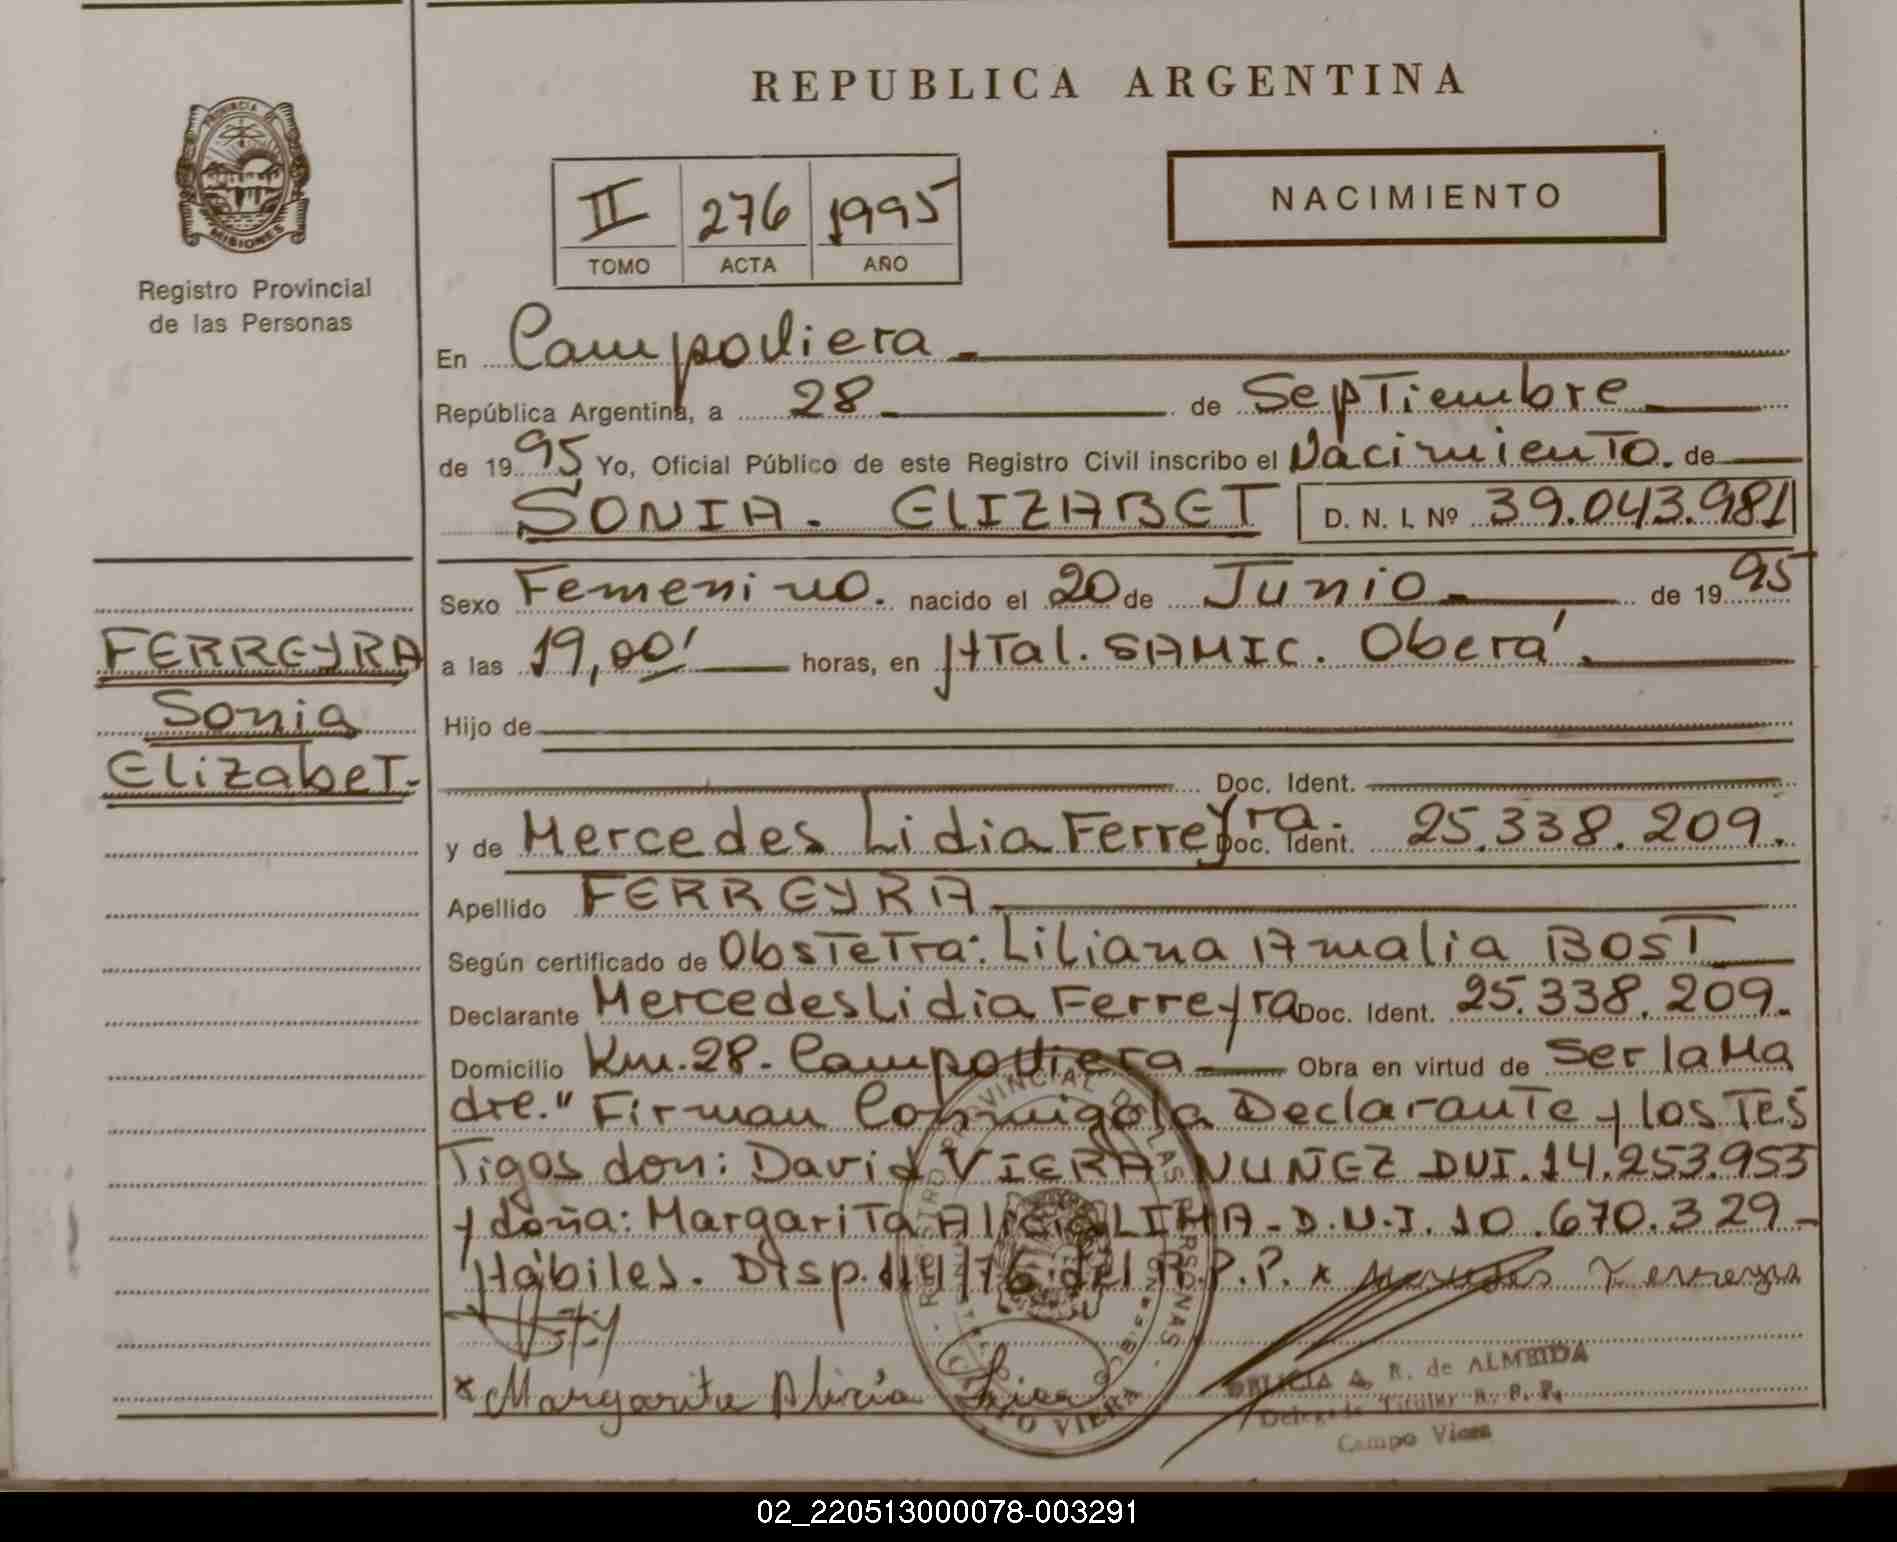 REPUBLICA ARGENTINA
PROVINCIA DE
MISIONES
Registro Provincial
de las Personas
II 276 1995
TOMO ACTA AÑO
NACIMIENTO
En Campo Viera
República Argentina, a 28 de Septiembre
de 1995 Yo, Oficial Público de este Registro Civil inscribo el Nacimiento. de
SONIA. ELIZABET D. N. I. Nº 39.043.981
Sexo Femenino. nacido el 20 de Junio de 1995
FERREYRA
Sonia
Elizabet.
a las 19,00' horas, en HTal. SAMIC. Oberá.
Hijo de
Doc. Ident.
y de Mercedes Lidia Ferreyra. Doc. Ident. 25.338.209.
Apellido FERREYRA
Según certificado de Obstetra: Liliana Amalia BOST
Declarante Mercedes Lidia Ferreyra Doc. Ident. 25.338.209.
Domicilio Km. 28. Campo Viera Obra en virtud de Ser la Ma
dre." Firman Conmigo la Declarante y los Tes
Tigos don: David VIERA NUÑEZ DNI. 14.253.953
y doña: Margarita Alicia LIMA - D.N.I. 10.670.329 -
Hábiles. Disp. 111/76 del R.P.P. x Mercedes Ferreyra
x Margarita Alicia Lima
REGISTRO PROVINCIAL DE LAS PERSONAS
CAMPO VIERA
A. R. de ALMEIDA
Delegada Titular R. P. P.
Campo Viera
02_220513000078-003291